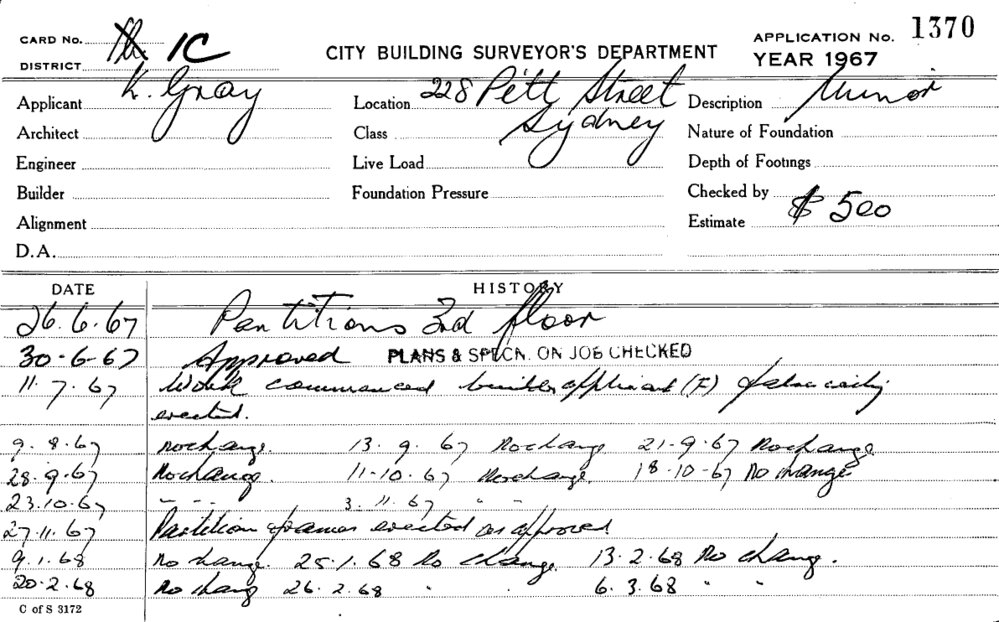 CARD No. 1C CITY BUILDING SURVEYOR'S DEPARTMENT APPLICATION No. 1370
DISTRICT YEAR 1967
Applicant K. Gray Location 228 Pitt Street Description Minor
Architect Class Sydney Nature of Foundation
Engineer Live Load Depth of Footings
Builder Foundation Pressure Checked by
Alignment Estimate $ 500
D.A.
DATE HISTORY
26.6.67 Partitions 3rd floor
30-6-67 Approved PLANS & SPECN. ON JOB CHECKED
11.7.67 Work commenced builder applicant (F)
erected.
9.8.67 No change. 13.9.67 No change 21-9-67 No change
28.9.67 No change 11-10-67 No change. 18-10-67 No change
23.10.67 " " 3.11.67 " "
27.11.67 Partition frames erected as approved
9.1.68 No change. 25.1.68 No change. 13.2.68 No change.
20.2.68 No chang 26.2.68 " " 6.3.68 " "
C of S 3172